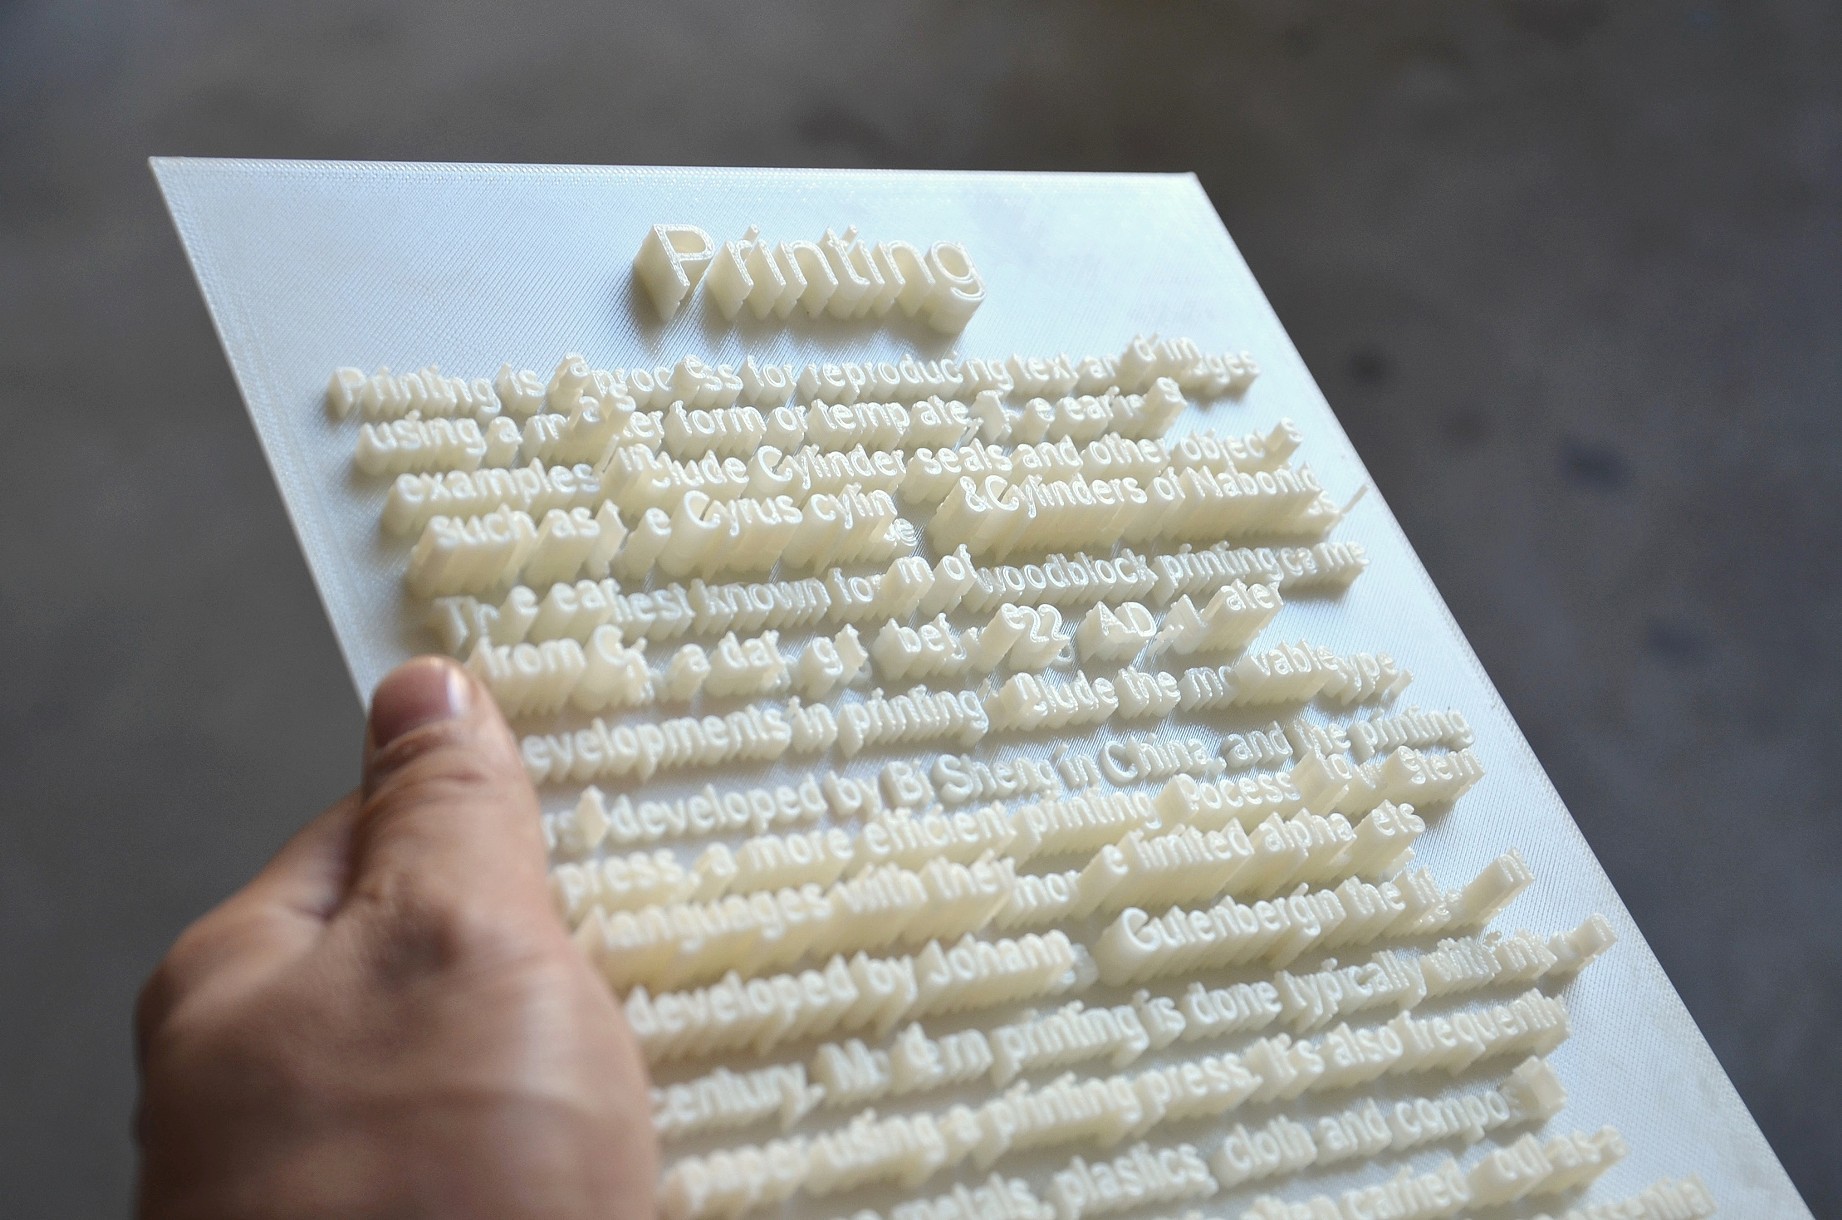 Printing
Printing is a process for reproducing text and images
using a master form or template. The earliest
examples include Cylinder seals and other objects
such as the Cyrus cylinder & Cylinders of Nabonidus
The earliest known form of woodblock printing came
from China dating before 220 AD. Later
developments in printing include the movable type
developed by Bi Sheng in China, and the printing
press, a more efficient printing process for western
languages with their more limited alphabets
developed by Johann Gutenberg in the
century. Modern printing is done typically with ink on
paper using a printing press. It's also frequently
metals, plastics, cloth and
often carried out as a